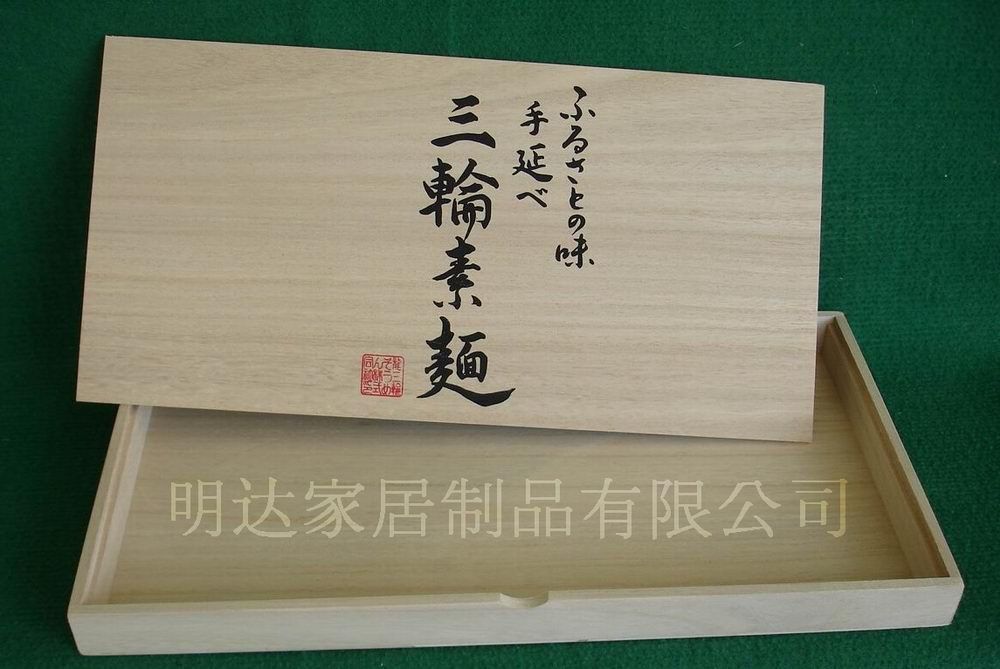 ふるさとの味
手延べ
三輪素麺
明达家居制品有限公司